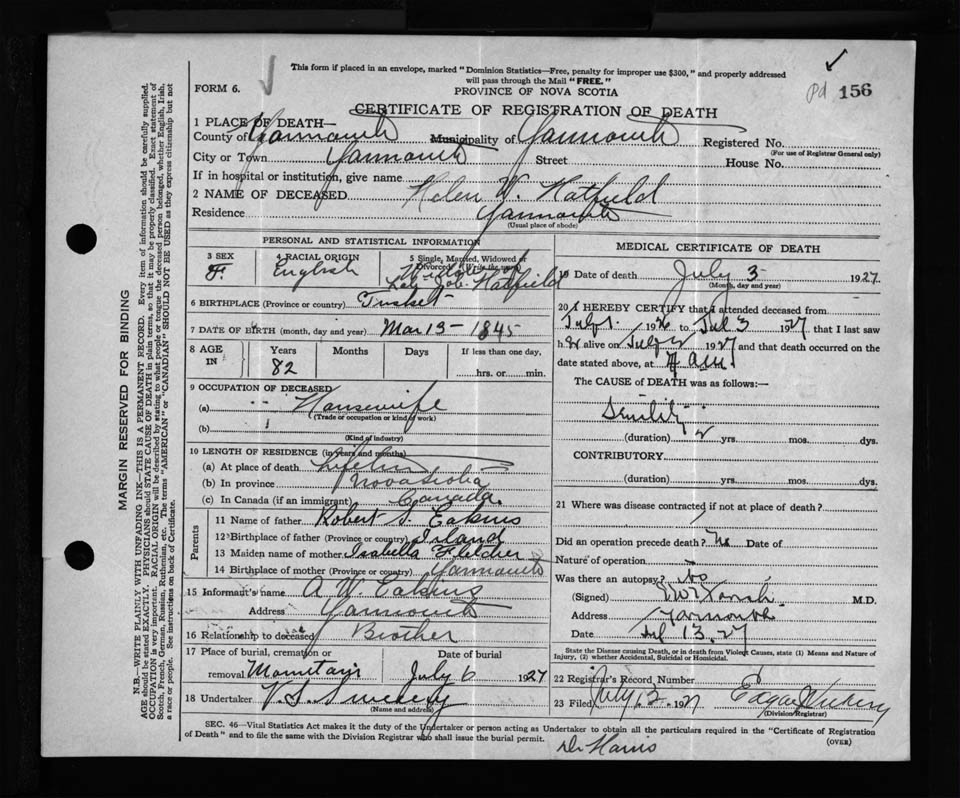 This form if placed in an envelope, marked "Dominion Statistics—Free, penalty for improper use $300," and properly addressed
will pass through the Mail "FREE."
FORM 6.
PROVINCE OF NOVA SCOTIA
Pd 156
CERTIFICATE OF REGISTRATION OF DEATH
1 PLACE OF DEATH—
County of Yarmouth Municipality of Yarmouth Registered No.
(For use of Registrar General only)
City or Town Yarmouth Street House No.
If in hospital or institution, give name
2 NAME OF DECEASED Helen W. Hatfield
Residence Yarmouth
(Usual place of abode)
PERSONAL AND STATISTICAL INFORMATION
3 SEX 4 RACIAL ORIGIN 5 Single, Married, Widowed or
Divorced (Write the word)
F. English Widow of
Hatfield
6 BIRTHPLACE (Province or country) Tusket
7 DATE OF BIRTH (month, day and year) Mar 13 - 1845
8 AGE IN Years Months Days If less than one day,
82 hrs. or min.
9 OCCUPATION OF DECEASED
(a) Housewife
(Trade or occupation or kind of work)
(b)
(Kind of industry)
10 LENGTH OF RESIDENCE (in years and months)
(a) At place of death Lifetime
(b) In province Nova Scotia
(c) In Canada (if an immigrant) Canada
Parents
11 Name of father Robert S. Eakins
12 Birthplace of father (Province or country) Irland
13 Maiden name of mother Isabella Fletcher
14 Birthplace of mother (Province or country) Yarmouth
15 Informant's name A. W. Eakins
Address Yarmouth
16 Relationship to deceased Brother
17 Place of burial, cremation or
removal Mountain
Date of burial
July 6 1927
18 Undertaker V. S. Sweeny
(Name and address)
MEDICAL CERTIFICATE OF DEATH
19 Date of death July 3 1927
(Month, day and year)
20 I HEREBY CERTIFY that I attended deceased from
1926 to Jul 3 1927 that I last saw
h er alive on July 2 1927 and that death occurred on the
date stated above, at A.M.
The CAUSE OF DEATH was as follows:—
Senility
(duration) 2 yrs. mos. dys.
CONTRIBUTORY
(duration) yrs. mos. dys.
21 Where was disease contracted if not at place of death?
Did an operation precede death? No Date of
Nature of operation
Was there an autopsy? No
(Signed) M.D.
Address Yarmouth
Date Jul 13. 27
State the Disease causing Death, or in death from Violent Causes, state (1) Means and Nature of
Injury, (2) whether Accidental, Suicidal or Homicidal.
22 Registrar's Record No.
23 Filed July 13. 1927 Edgar Vickery
(Division Registrar)
SEC. 46—Vital Statistics Act makes it the duty of the Undertaker or person acting as Undertaker to obtain all the particulars required in the "Certificate of Registration
of Death" and to file the same with the Division Registrar who shall issue the burial permit.
(OVER)
Dr Harris
MARGIN RESERVED FOR BINDING
N.B.—WRITE PLAINLY WITH UNFADING INK—THIS IS A PERMANENT RECORD. Every item of information should be carefully supplied.
AGE should be stated EXACTLY. PHYSICIANS should STATE CAUSE OF DEATH in plain terms, so that it may be properly classified. Exact statement of
OCCUPATION is very important. RACIAL ORIGIN will be described by stating to what people or tongue the deceased person belonged, whether English, Irish,
Scotch, French, German, Russian, Ruthenian, etc. The terms "AMERICAN" or "CANADIAN" SHOULD NOT BE USED as they express citizenship but not
a race or people. See instructions on back of Certificate.